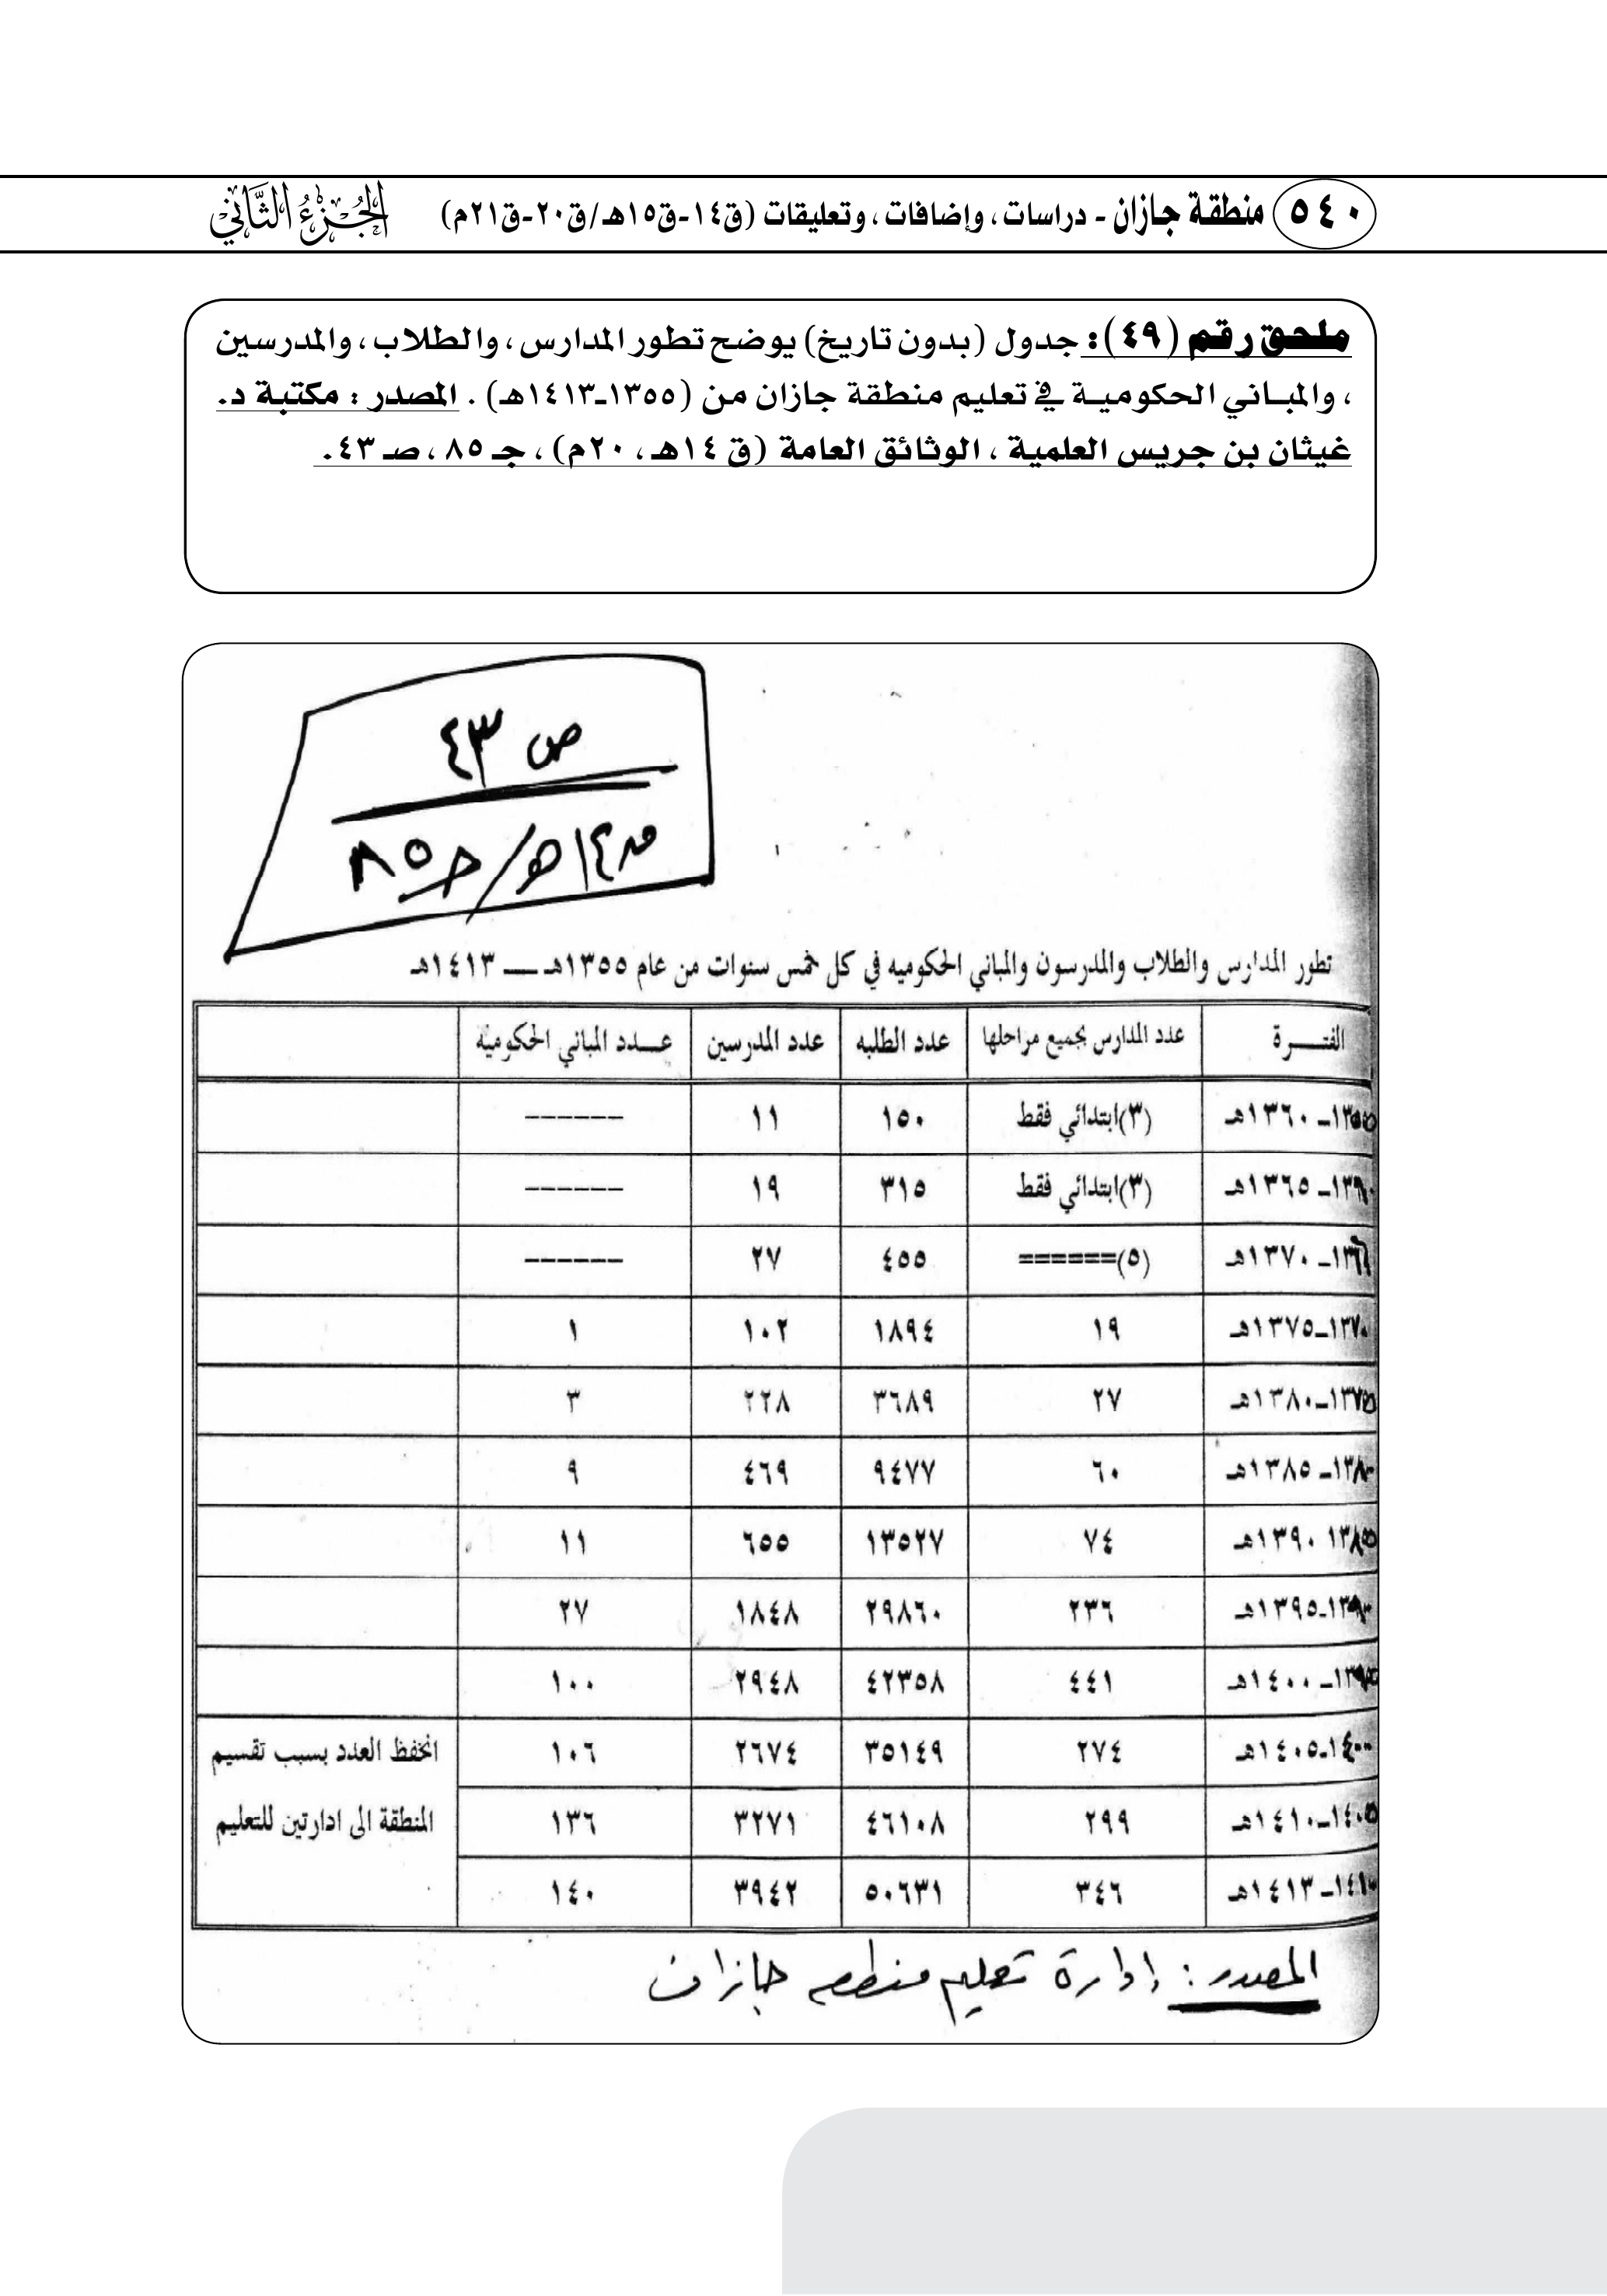 ٥٤٠ منطقة جازان - دراسات، وإضافات، وتعليقات (ق١٤-ق١٥هـ/ق٢٠-ق٢١م) الجزء الثاني
ملحق رقم (٤٩): جدول (بدون تاريخ) يوضح تطور المدارس، والطلاب، والمدرسين
، والمباني الحكومية في تعليم منطقة جازان من (١٣٥٥-١٤١٣هـ) . المصدر : مكتبة د.
غيثان بن جريس العلمية ، الوثائق العامة (ق ١٤هـ، ٢٠م) ، جـ ٨٥ ، صـ ٤٣.
ص ٤٣
ق١٤هـ/جـ٨٥
تطور المدارس والطلاب والمدرسون والمباني الحكوميه في كل خمس سنوات من عام ١٣٥٥هـ — ١٤١٣هـ
الفتـــرة عدد المدارس بجميع مراحلها عدد الطلبه عدد المدرسين عـــدد المباني الحكوميه
١٣٥٥ـ ١٣٦٠هـ (٣)ابتدائي فقط ١٥٠ ١١ ------
١٣٦٠ـ ١٣٦٥هـ (٣)ابتدائي فقط ٣١٥ ١٩ ------
١٣٦٥ـ ١٣٧٠هـ (٥)====== ٤٥٥ ٢٧ ------
١٣٧٠ـ١٣٧٥هـ ١٩ ١٨٩٤ ١٠٢ ١
١٣٧٥ـ١٣٨٠هـ ٢٧ ٣٦٨٩ ٢٢٨ ٣
١٣٨٠ـ ١٣٨٥هـ ٦٠ ٩٤٧٧ ٤٦٩ ٩
١٣٨٥ ١٣٩٠هـ ٧٤ ١٣٥٢٧ ٦٥٥ ١١
١٣٩٠ـ١٣٩٥هـ ٢٣٦ ٢٩٨٦٠ ١٨٤٨ ٢٧
١٣٩٥ـ ١٤٠٠هـ ٤٤١ ٤٢٣٥٨ ٢٩٤٨ ١٠٠
١٤٠٠ـ١٤٠٥هـ ٢٧٤ ٣٥١٤٩ ٢٦٧٤ ١٠٦ انخفظ العدد بسبب تقسيم
١٤٠٥ـ١٤١٠هـ ٢٩٩ ٤٦١٠٨ ٣٢٧١ ١٣٦ المنطقة الى ادارتين للتعليم
١٤١٠ـ ١٤١٣هـ ٣٤٦ ٥٠٦٣١ ٣٩٤٢ ١٤٠
المصدر : إدارة تعليم منطقة جازان